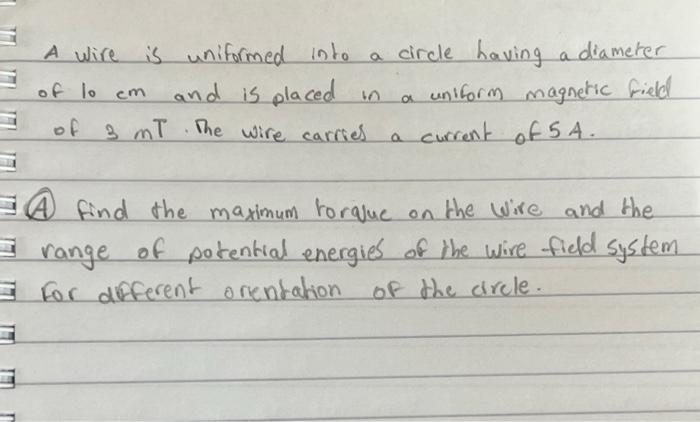 A wire is uniformed into a circle having a diameter
of 10 cm and is placed in a uniform magnetic field
of 3 mT. The wire carries a current of 5 A.
A find the maximum torque on the wire and the
range of potential energies of the wire-field system
for different orentation of the circle.